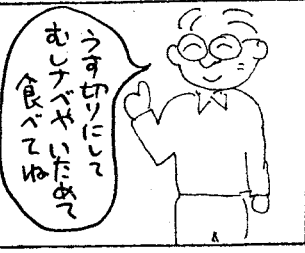 うす切りにして
むしナベやいためて
食べてね